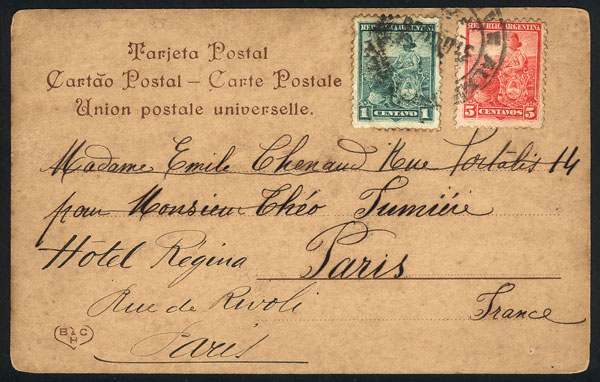 Tarjeta Postal
Cartão Postal – Carte Postale
Union postale universelle.
REPUBLICA ARGENTINA
1 CENTAVO 1
REPUBLICA ARGENTINA
5 CENTAVOS 5
Madame Emile Chenaud Rue Portalis 14
pour Monsieur Théo Fumière
Hotel Régina Paris
Rue de Rivoli France
Paris
B C
H